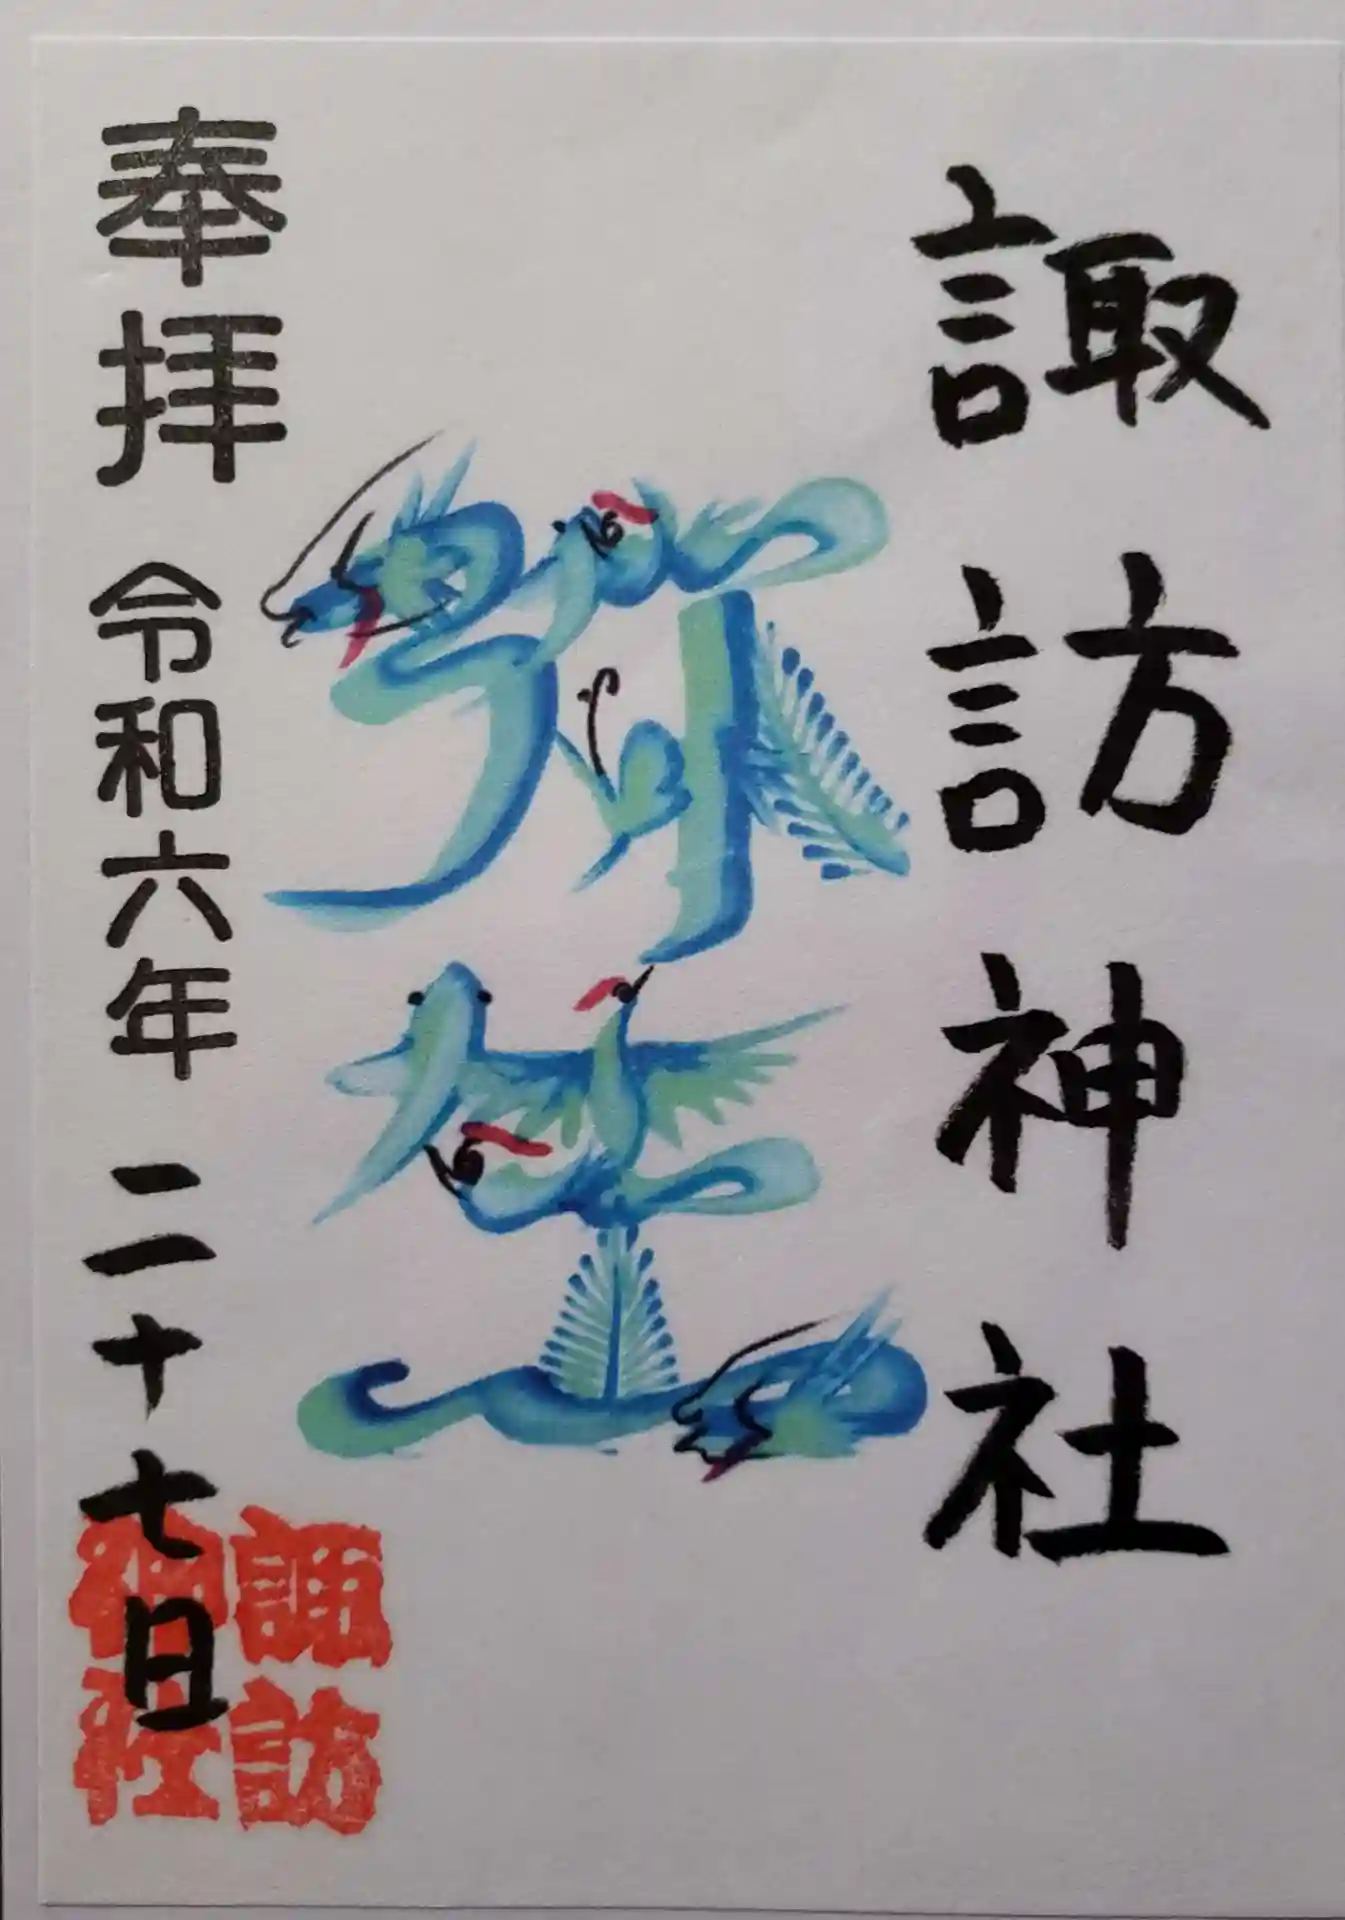 諏訪神社
弥生
奉拝 令和六年 二十七日
諏訪
神社